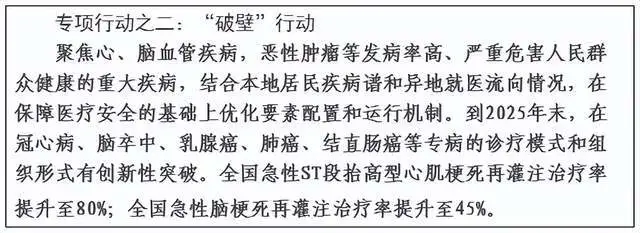 专项行动之二：“破壁”行动
聚焦心、脑血管疾病，恶性肿瘤等发病率高、严重危害人民群
众健康的重大疾病，结合本地居民疾病谱和异地就医流向情况，在
保障医疗安全的基础上优化要素配置和运行机制。到2025年末，在
冠心病、脑卒中、乳腺癌、肺癌、结直肠癌等专病的诊疗模式和组
织形式有创新性突破。全国急性ST段抬高型心肌梗死再灌注治疗率
提升至80%；全国急性脑梗死再灌注治疗率提升至45%。